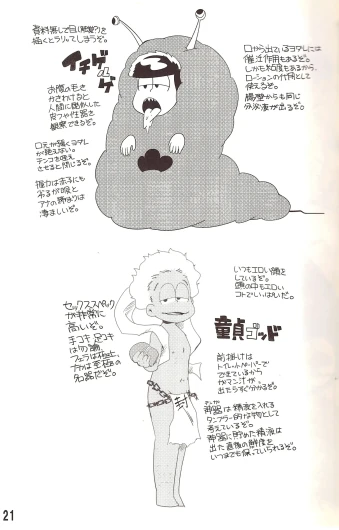 資料無しで目(触覚?)を
描くとラリってしまうぞ。
イチゲルゲ
お腹の毛を
かきわけると
人間に酷似した
皮フや性器を
観察できるぞ。
口元が緩くヨダレ
が絶えない。
チンコを咥え
させると閉じるぞ。
握力は赤子にも
劣るが喉と
アナの締まりは
凄まじいぞ。
口から出ているヨダレには
催淫作用もあるぞ。
しかも粘度もあるから、
ローションの代用として
使えるぞ。
腸壁からも同じ
分泌液が出るぞ。
いつもエロい顔を
しているぞ。
頭の中もエロい
コトでいっぱいだ。
童貞ゴッド
セックススペック
が非常に
高いぞ。
手コキ 足コキ
は勿論、
フェラは極上、
ナカは至極の
名器だぞ。
前掛けは
トイレットペーパーで
できているから
ガマン汁が
出たらすぐ分かるぞ。
神器は精液を入れる
タンブラー的な物として
考えているぞ。
神器に貯めた精液は
出た直後の鮮度を
いつまでも保っていられるぞ。
封
21